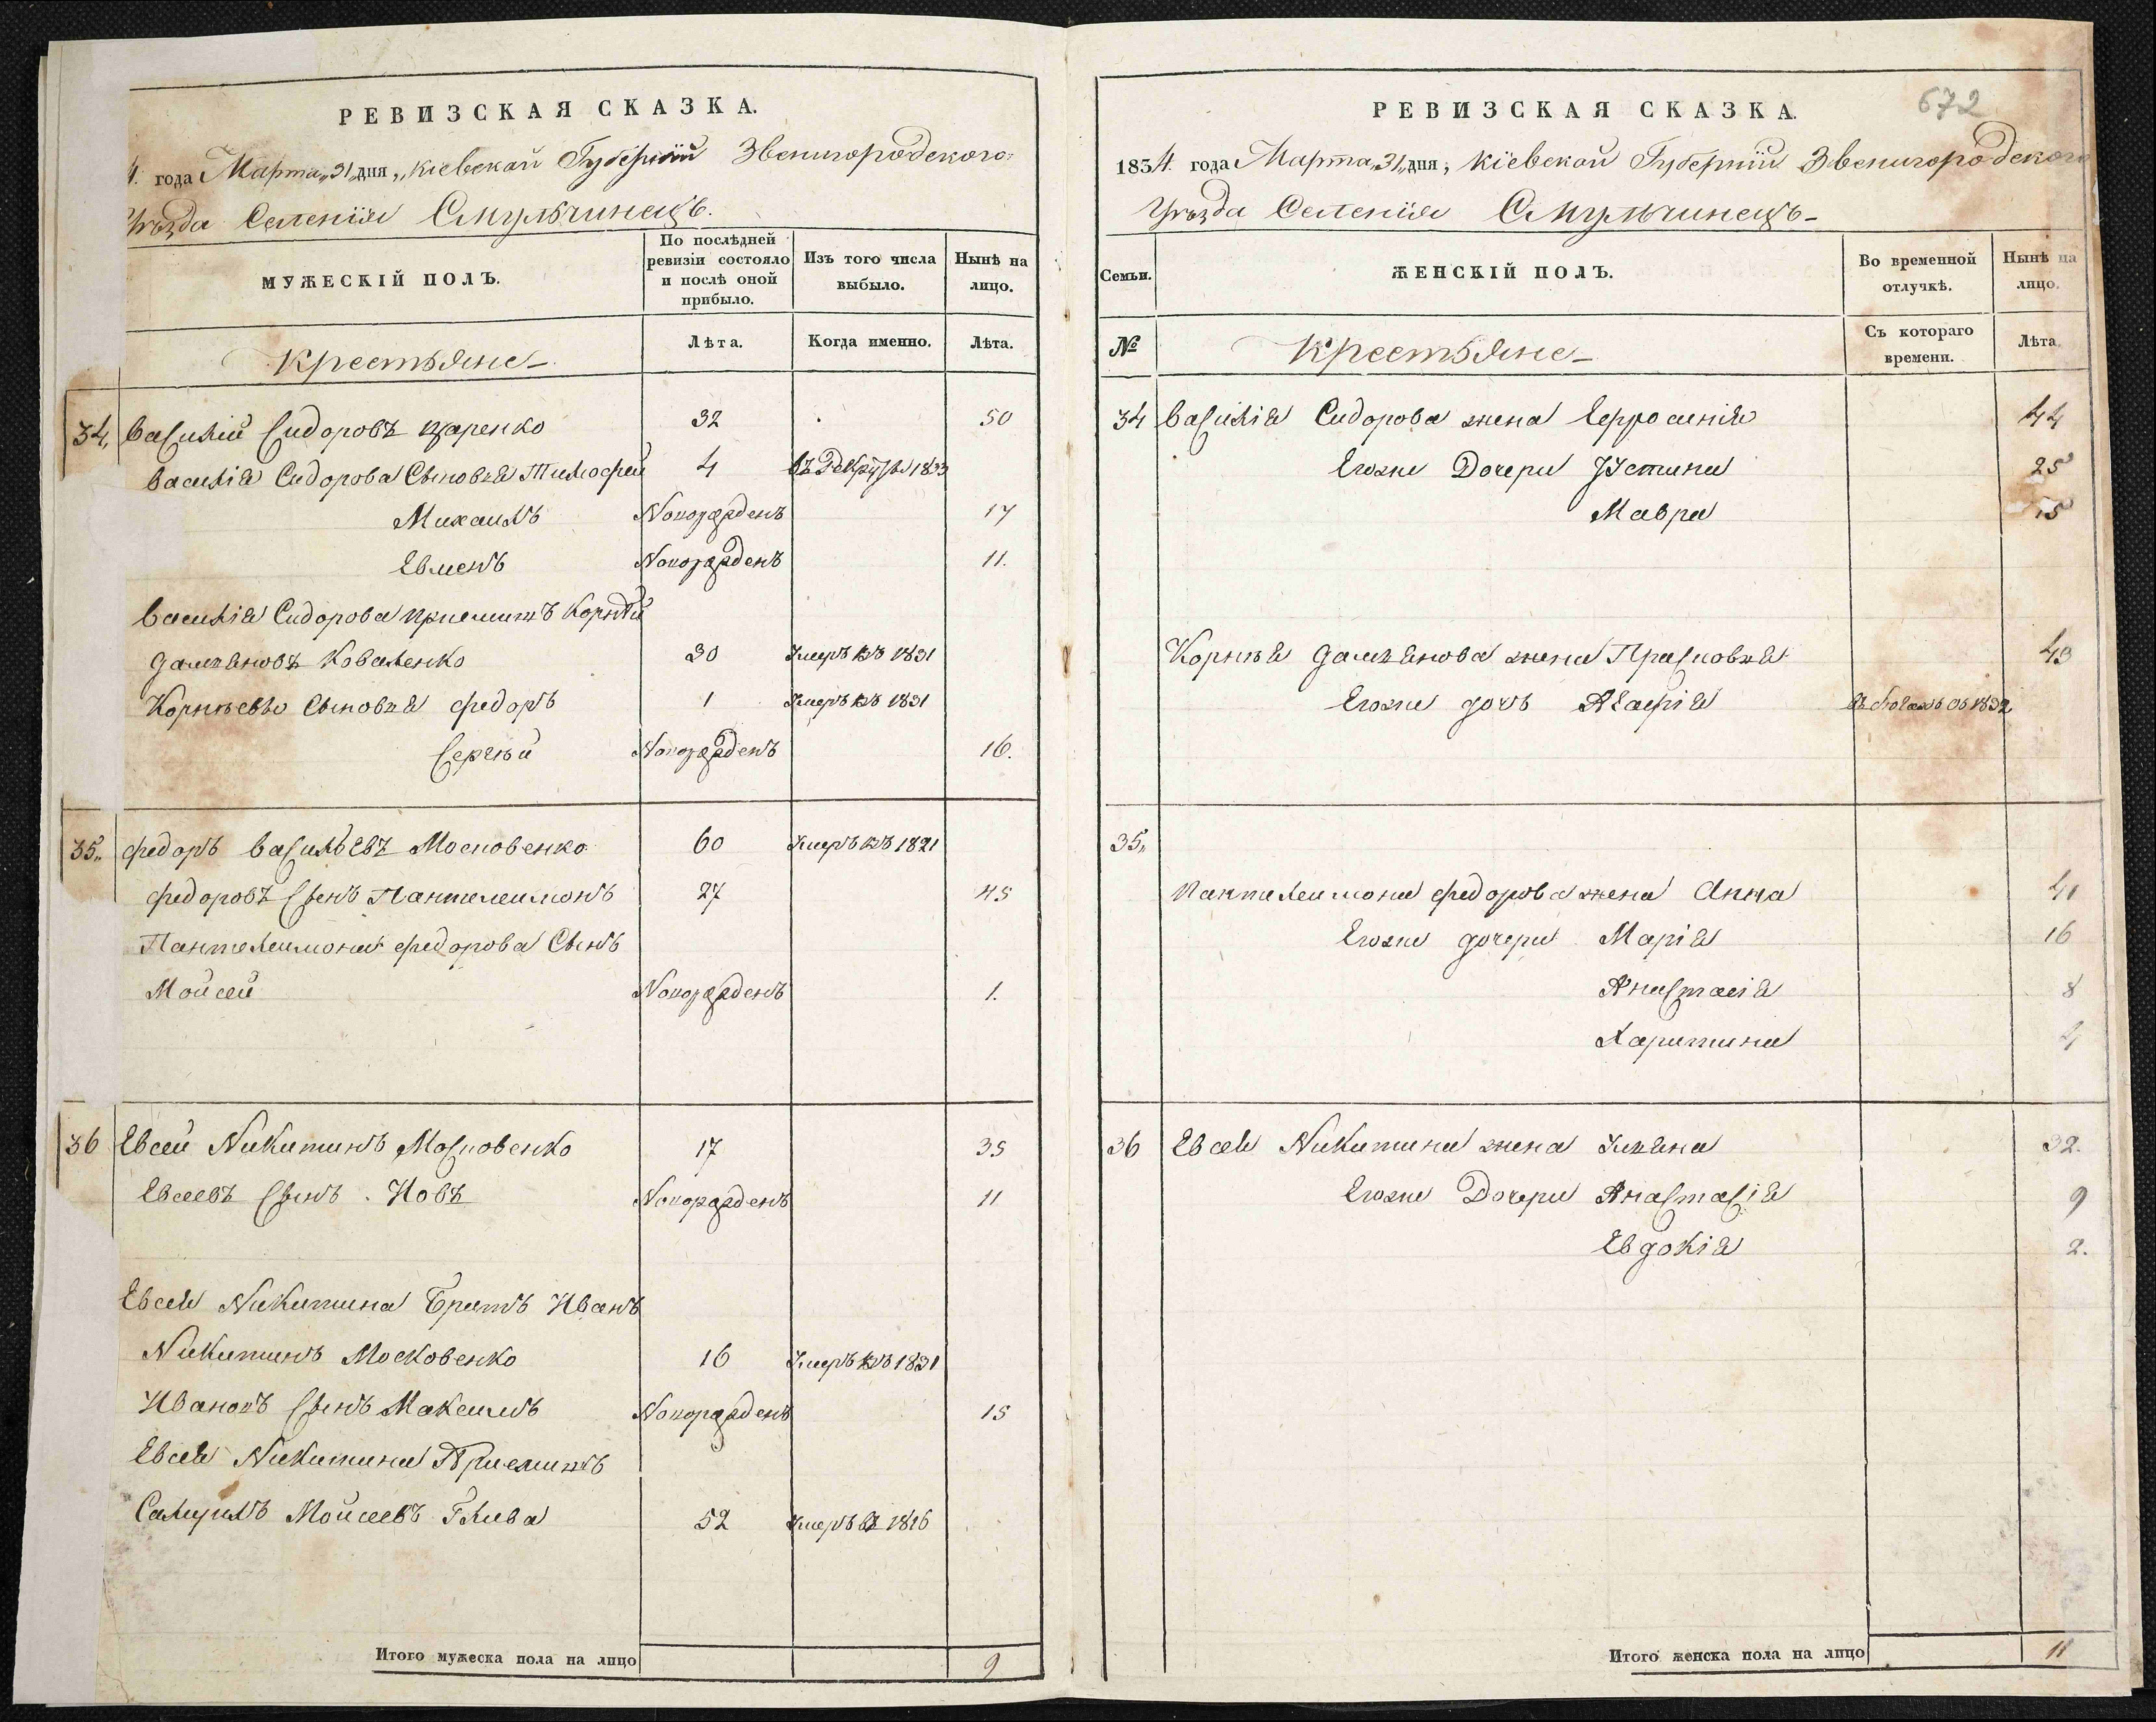 РЕВИЗСКАЯ СКАЗКА.
4. года Марта „31„ дня, Кіевской Губерніи Звенигородского
Уѣзда Селенія Смульчинецъ.
МУЖЕСКІЙ ПОЛЪ.
По послѣдней ревизіи состояло и послѣ оной прибыло.
Изъ того числа выбыло.
Нынѣ на лицо.
Крестьяне
Лѣта.
Когда именно.
Лѣта.
34, Василій Сидоровъ Царенко 32 50
Василія Сидорова Сыновья Тимофей 4 въ 1833
Михаилъ Новорожденъ 17
Евменъ Новорожденъ 11.
Василія Сидорова приемишъ Корнѣй
Дамяновъ Коваленко 30 Умеръ въ 1831
Корнѣевы Сыновья Федоръ 1 Умеръ въ 1831
Сергѣй Новорожденъ 16.
35„ Федоръ Васильевъ Московенко 60 Умеръ въ 1821
Федоровъ Сынъ Пантелеимонъ 27 45
Пантелеимона Федорова Сынъ
Мойсей Новорожденъ 1.
36 Евсей Никитинъ Московенко 17 35
Евсеевъ Сынъ Іовъ Новорожденъ 11
Евсея Никитина Братъ Иванъ
Никитинъ Московенко 16 Умеръ въ 1831
Ивановъ Сынъ Максимъ Новорожденъ 15
Евсея Никитина Приемишъ
Самуилъ Мойсеевъ Глива 52 Умеръ въ 1816
Итого мужеска пола на лицо 9
672
РЕВИЗСКАЯ СКАЗКА.
1834. года Марта „31„ дня, Кіевской Губерніи Звенигородского
Уѣзда Селенія Смульчинецъ
Семьи.
ЖЕНСКІЙ ПОЛЪ.
Во временной отлучкѣ.
Нынѣ на лицо.
№
Крестьяне
Съ котораго времени.
Лѣта.
34 Василія Сидорова жена Ефросинія 44
Егоже Дочери Устина 25
Мавра 15
Корнѣя Дамянова жена Прасковья 43
Егоже дочь Агафія въ бѣгахъ съ 1832
35„
Пантелеимона Федорова жена Анна 41
Егоже дочери Марія 16
Анастасія 8
Харитина 4
36 Евсея Никитина жена Уляна 32.
Егоже Дочери Анастасія 9
Евдокія 2.
Итого женска пола на лицо 11